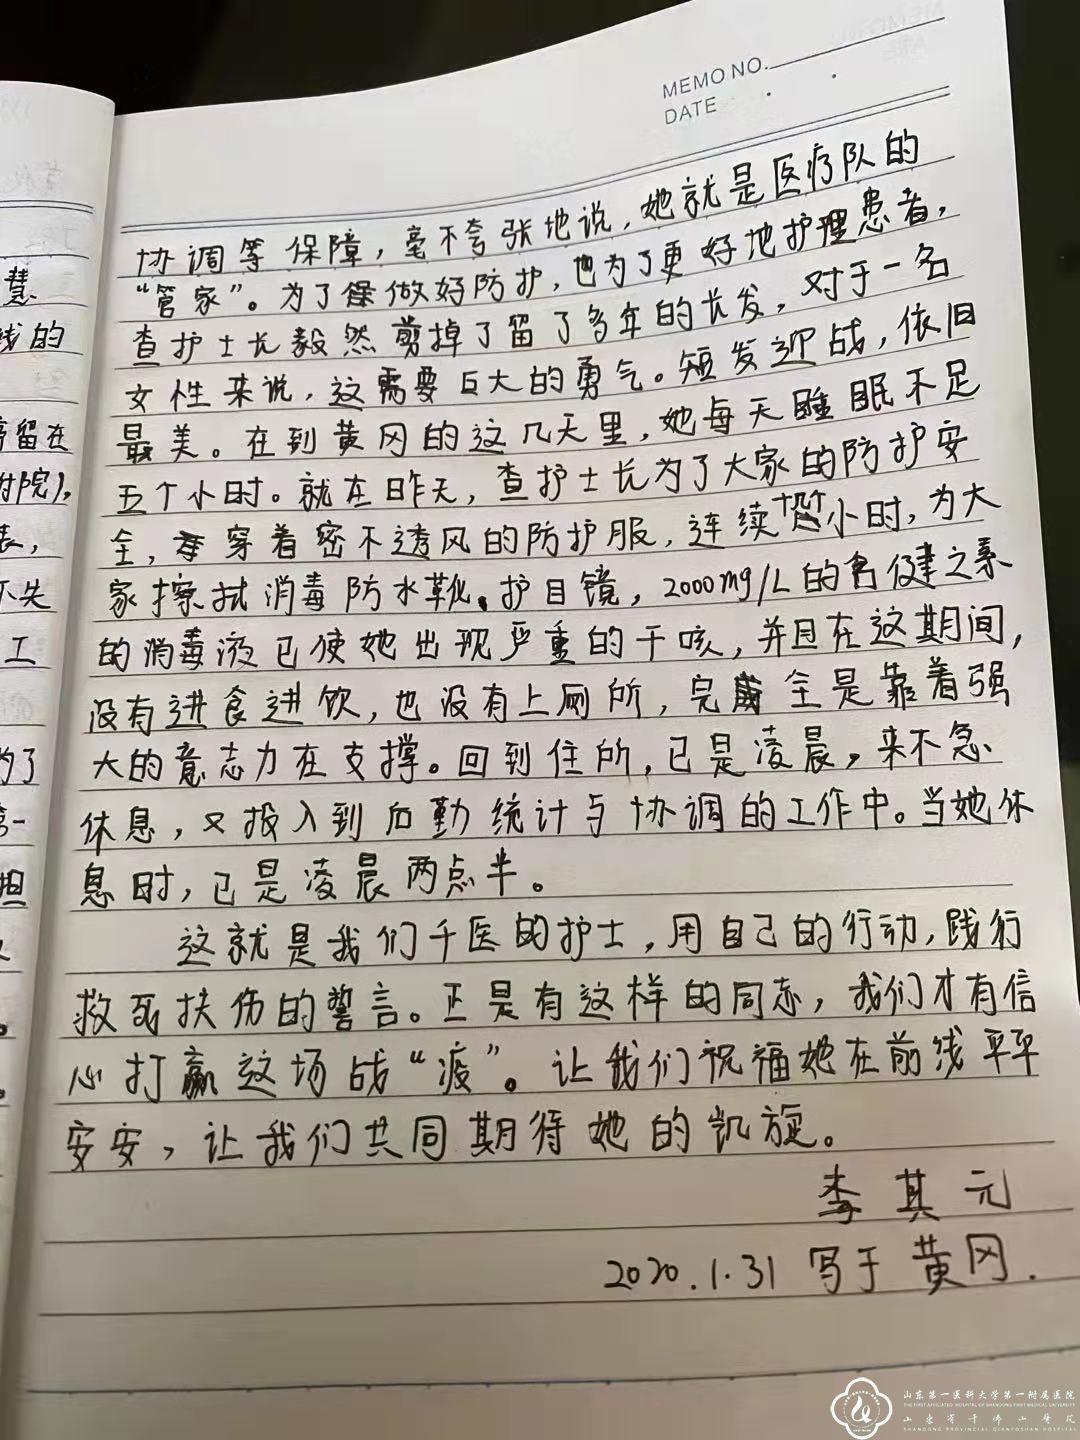 MEMO NO.
DATE
协调等保障，毫不夸张地说，她就是医疗队的
“管家”。为了做好防护，也为了更好地护理患者，
查护士长毅然剪掉了留了多年的长发，对于一名
女性来说，这需要巨大的勇气。短发迎战，依旧
最美。在到黄冈的这几天里，她每天睡眠不足
五个小时。就在昨天，查护士长为了大家的防护安
全，穿着密不透风的防护服，连续小时，为大
家擦拭消毒防水靴、护目镜，2000mg/L的含健之素
的消毒液已使她出现严重的干咳，并且在这期间，
没有进食进饮，也没有上厕所，完全是靠着强
大的意志力在支撑。回到住所，已是凌晨，来不急
休息，又投入到后勤统计与协调的工作中。当她休
息时，已是凌晨两点半。
这就是我们千医的护士，用自己的行动，践行
救死扶伤的誓言。正是有这样的同志，我们才有信
心打赢这场战“疫”。让我们祝福她在前线平平
安安，让我们共同期待她的凯旋。
李其元
2020.1.31 写于黄冈.
慧
线的
留在
附院)，
表，
不失
工
为了
一
担
山东第一医科大学第一附属医院
THE FIRST AFFILIATED HOSPITAL OF SHANDONG FIRST MEDICAL UNIVERSITY
山东省千佛山医院
SHANDONG PROVINCIAL QIANFOSHAN HOSPITAL